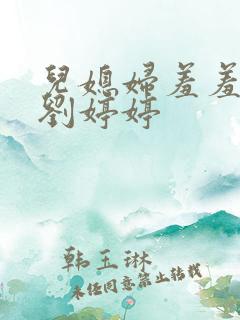 兒媳婦羞羞
劉婷婷
韩玉琳
未经同意禁止转载